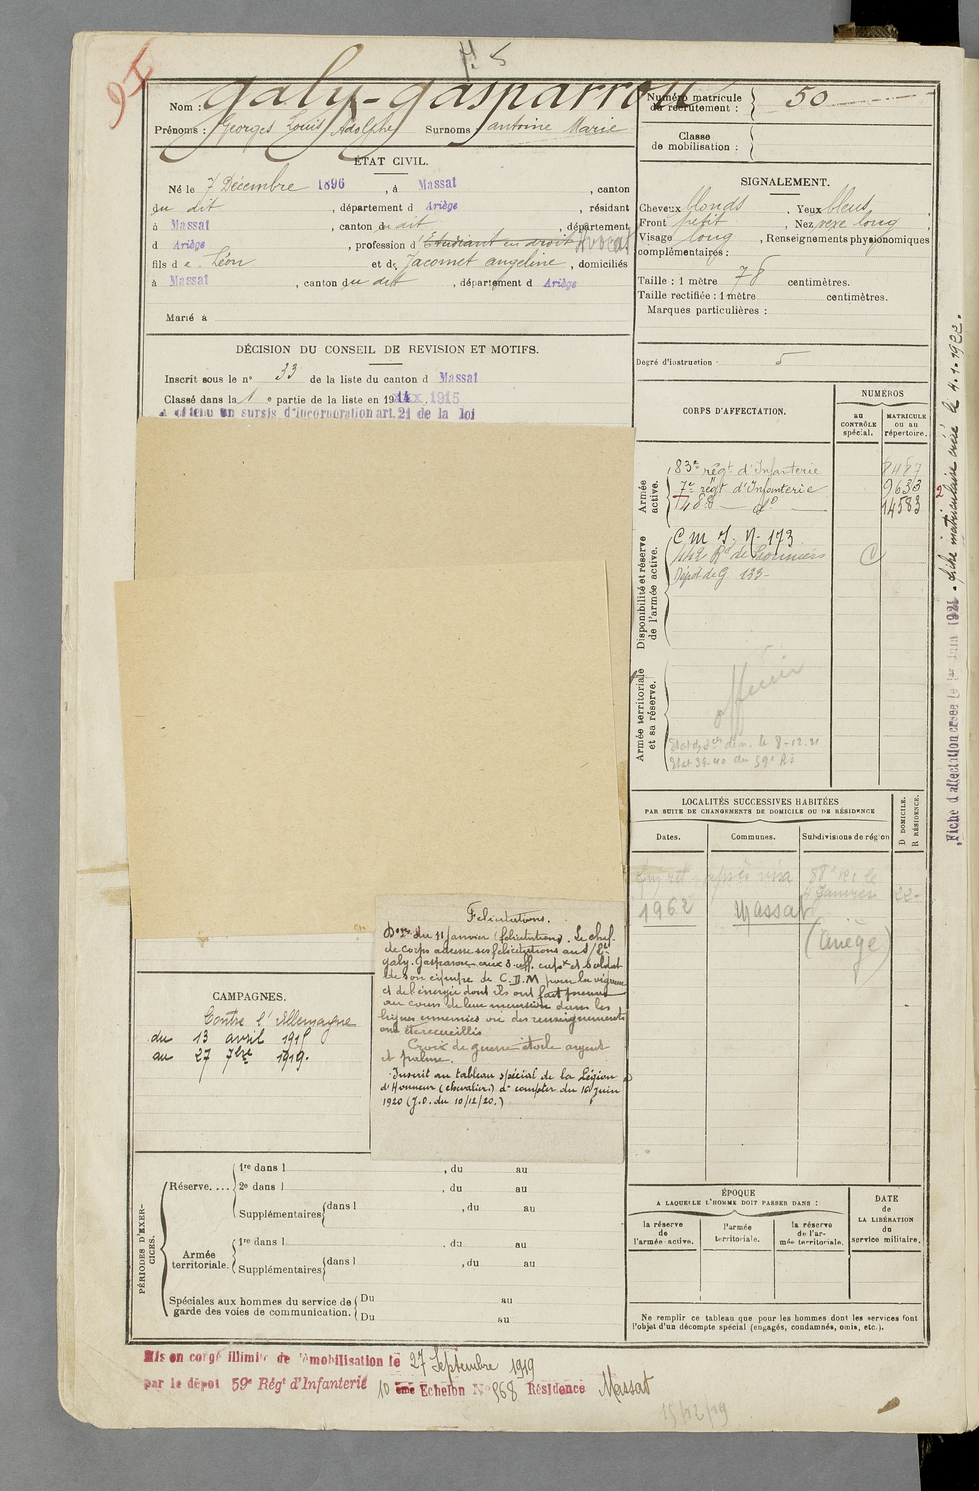 Nº 5
95
Nom : Galy-Gasparrou
Prénoms : Georges Louis Adolphe Surnoms antoine Marie
ÉTAT CIVIL.
Né le 7 Décembre 1896, à Massat, canton
du dit, département d Ariège, résidant
à Massat, canton du dit, département
d Ariège, profession d'Etudiant en droit Avocat
fils de Léon et de Jacomet angeline, domiciliés
à Massat, canton du dit, département d Ariège
Marié à
DÉCISION DU CONSEIL DE REVISION ET MOTIFS.
Inscrit sous le nº 33 de la liste du canton d Massat
Classé dans la 1e partie de la liste en 1915
A obtenu un sursis d'incorporation art. 21 de la loi
CAMPAGNES.
Contre l'Allemagne
du 13 avril 1915
au 27 7bre 1919.
Felicitations.
du 11 janvier (felicitations). Le chef
de corps adresse ses félicitations au S/Lt
Galy-Gasparrou aux S. off. capx et Soldat
de son équipe de C.I.M pour la vigueur
et de l'énergie dont ils ont fait preuve
au cours de leur incursion dans les
lignes ennemies où des renseignements
ont été recueillis
Croix de guerre étoile argent
et palme.
Inscrit au tableau spécial de la Légion
d'Honneur (chevalier) à compter du 16 juin
1920 (J.O. du 10/12/20.)
PÉRIODES D'EXERCICES.
Réserve....
1re dans l , du au
2e dans l , du au
Supplémentaires dans l , du au
Armée territoriale.
1re dans l , du au
Supplémentaires dans l , du au
Spéciales aux hommes du service de garde des voies de communication.
Du au
Du au
Numéro matricule du recrutement : 50
Classe de mobilisation :
SIGNALEMENT.
Cheveux blonds, Yeux bleus,
Front petit, Nez vexe long,
Visage long, Renseignements physionomiques
complémentaires :
Taille : 1 mètre 78 centimètres.
Taille rectifiée : 1 mètre centimètres.
Marques particulières :
Degré d'instruction : 5
CORPS D'AFFECTATION.
NUMÉROS
au CONTRÔLE spécial.
MATRICULE ou au répertoire.
Armée active.
83e régt d'Infanterie 8487
7e régt d'Infanterie 9633
148e — do — 14583
Disponibilité et réserve de l'armée active.
C m I. N. 173
Dépôt de G 133
Armée territoriale et sa réserve.
officier
LOCALITÉS SUCCESSIVES HABITÉES
PAR SUITE DE CHANGEMENTS DE DOMICILE OU DE RÉSIDENCE
Dates. Communes. Subdivisions de région
D DOMICILE.
R RÉSIDENCE.
1962 Massat (Ariège)
ÉPOQUE
A LAQUELLE L'HOMME DOIT PASSER DANS :
la réserve de l'armée active.
l'armée territoriale.
la réserve de l'armée territoriale.
DATE de LA LIBÉRATION du service militaire.
Ne remplir ce tableau que pour les hommes dont les services font
l'objet d'un décompte spécial (engagés, condamnés, omis, etc.).
Fiche d'affectation créée le 1er Juin 1921. Fiche matriculaire créée le 4.1.1922.
Mis en congé illimité de démobilisation le 27 Septembre 1919
par le dépôt 59e Régt d'Infanterie 10 ème Echelon Nº 968 Résidence Massat
15/12/19